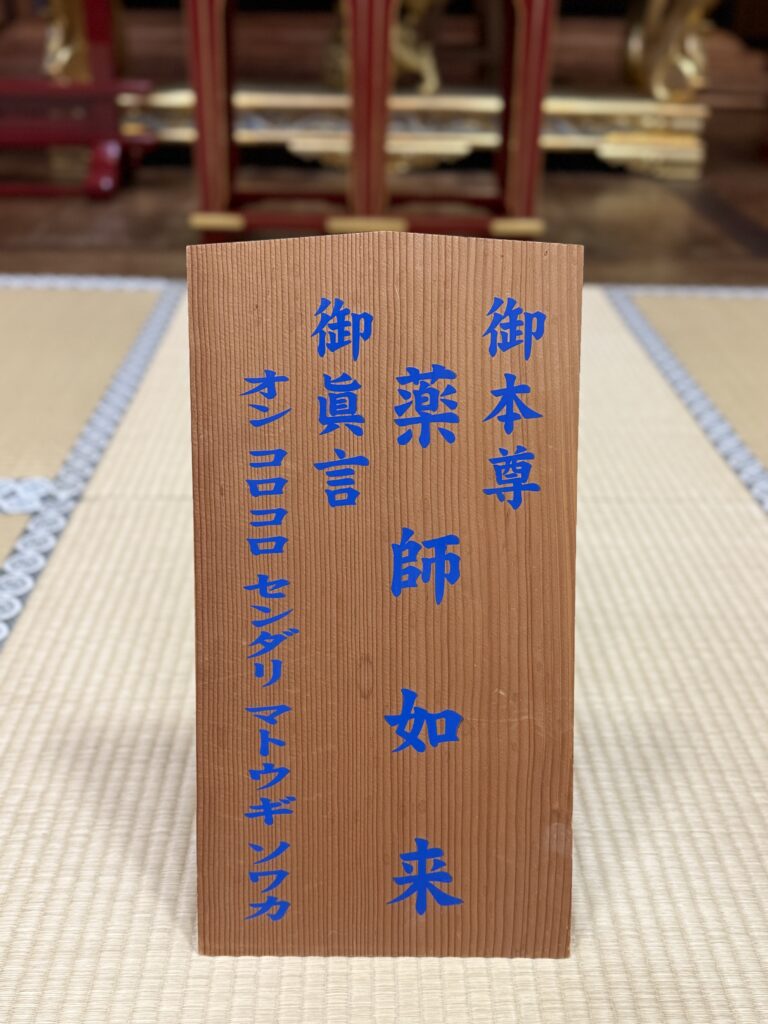 御本尊
薬師如来
御眞言
オン コロコロ センダリ マトウギ ソワカ